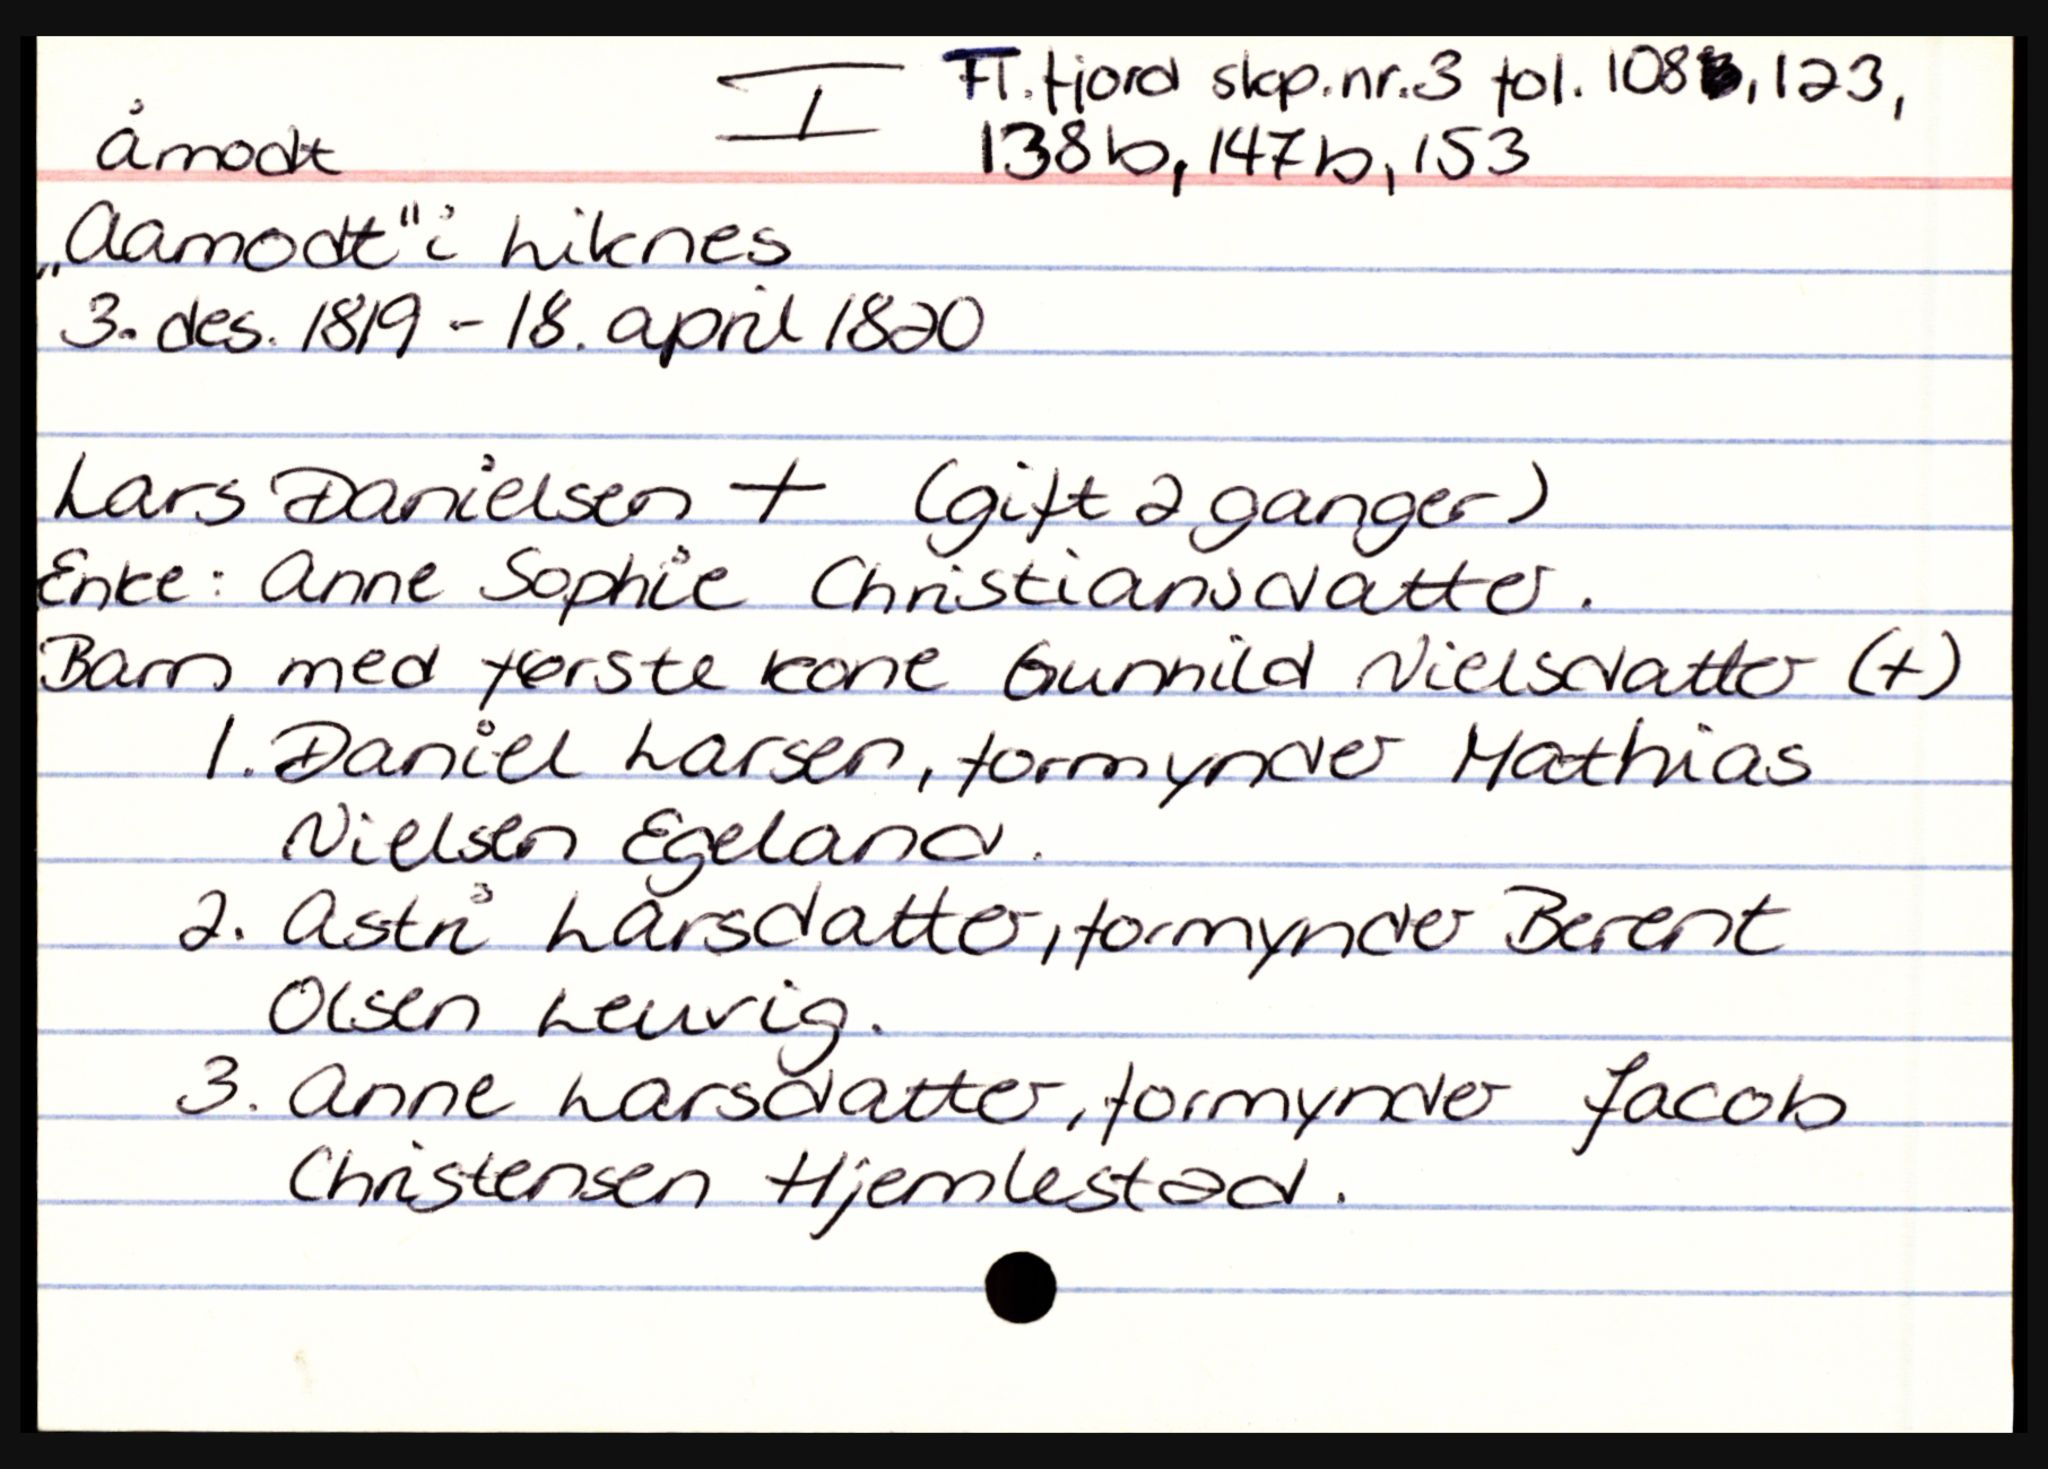 I Fl.fjord skp.nr.3 fol. 108b, 123,
Åmodt 138b, 147b, 153
„Aamodt" i Liknes
3. des. 1819 - 18. april 1820
Lars Danielsen + (gift 2 ganger)
Enke: Anne Sophie Christiansdatter.
Barn med første kone Gunnild Nielsdatter (+)
1. Daniel Larsen, formynder Mathias
Nielsen Egeland.
2. Astri Larsdatter, formynder Berent
Olsen Leuvig.
3. Anne Larsdatter, formynder Jacob
Christensen Hjemlestad.